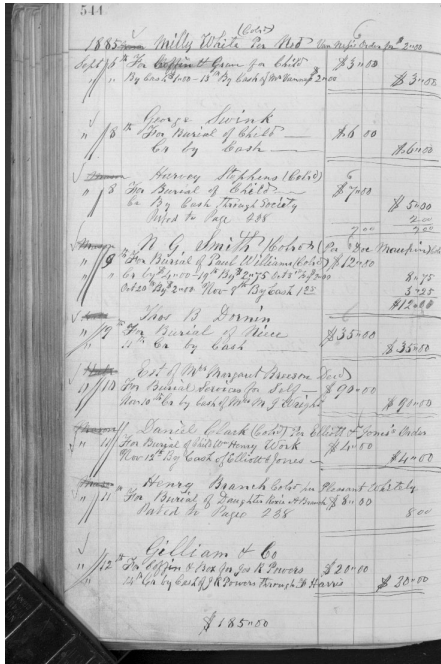 544
(Cold)
1885 Milly White Per Ned Van Ness Order for $2.00
Sept 6th For Coffin & Grave for Child $3.00
By Cash 1.00 - 13th By Cash of $2.00 $3.00
George Swink
" 8th For Burial of Child $6.00
Cr by Cash $6.00
Harvey Stephens (Cold)
" 8 For Burial of Child $7.00
Cr By Cash through Society $5.00
Posted to Page 238 2.00
7.00 7.00
N. G. Smith (Cold) (Per Doc
" 9th For Burial of Paul Williams (Cold) $12.00
Cr by $4.00 - 19th By $2.75 Oct 3rd $2.00 8.75
Oct 20th By $2.00 Nov 9th By Cash 1.25 3.25
$12.00
Thos B. Dornin
" 9th For Burial of Niece $35.00
11th Cr by Cash $35.00
Est of Mrs Margaret Decd
" 10 For Burial Services for Self $90.00
Nov 10th Cr by Cash of Mr M J Wright $90.00
Daniel Clack (Cold) Per Elliott & Jones Order
" 11 For Burial of Child Wm Henry Work $4.00
Nov 12th By Cash of Elliott & Jones $4.00
Henry Branch Cold, for Pleasant
" 11th For Burial of Daughter Branch $8.00
Posted to Page 238 8.00
Gilliam & Co
" 12th For Coffin & Box for Jos R Powers $20.00
14th Cr by Cash of J R Powers through Harris $20.00
$185.00